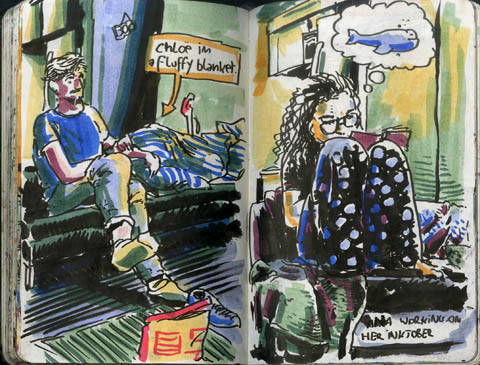 chloe in
a fluffy blanket.
ANA WORKING ON
HER INKTOBER